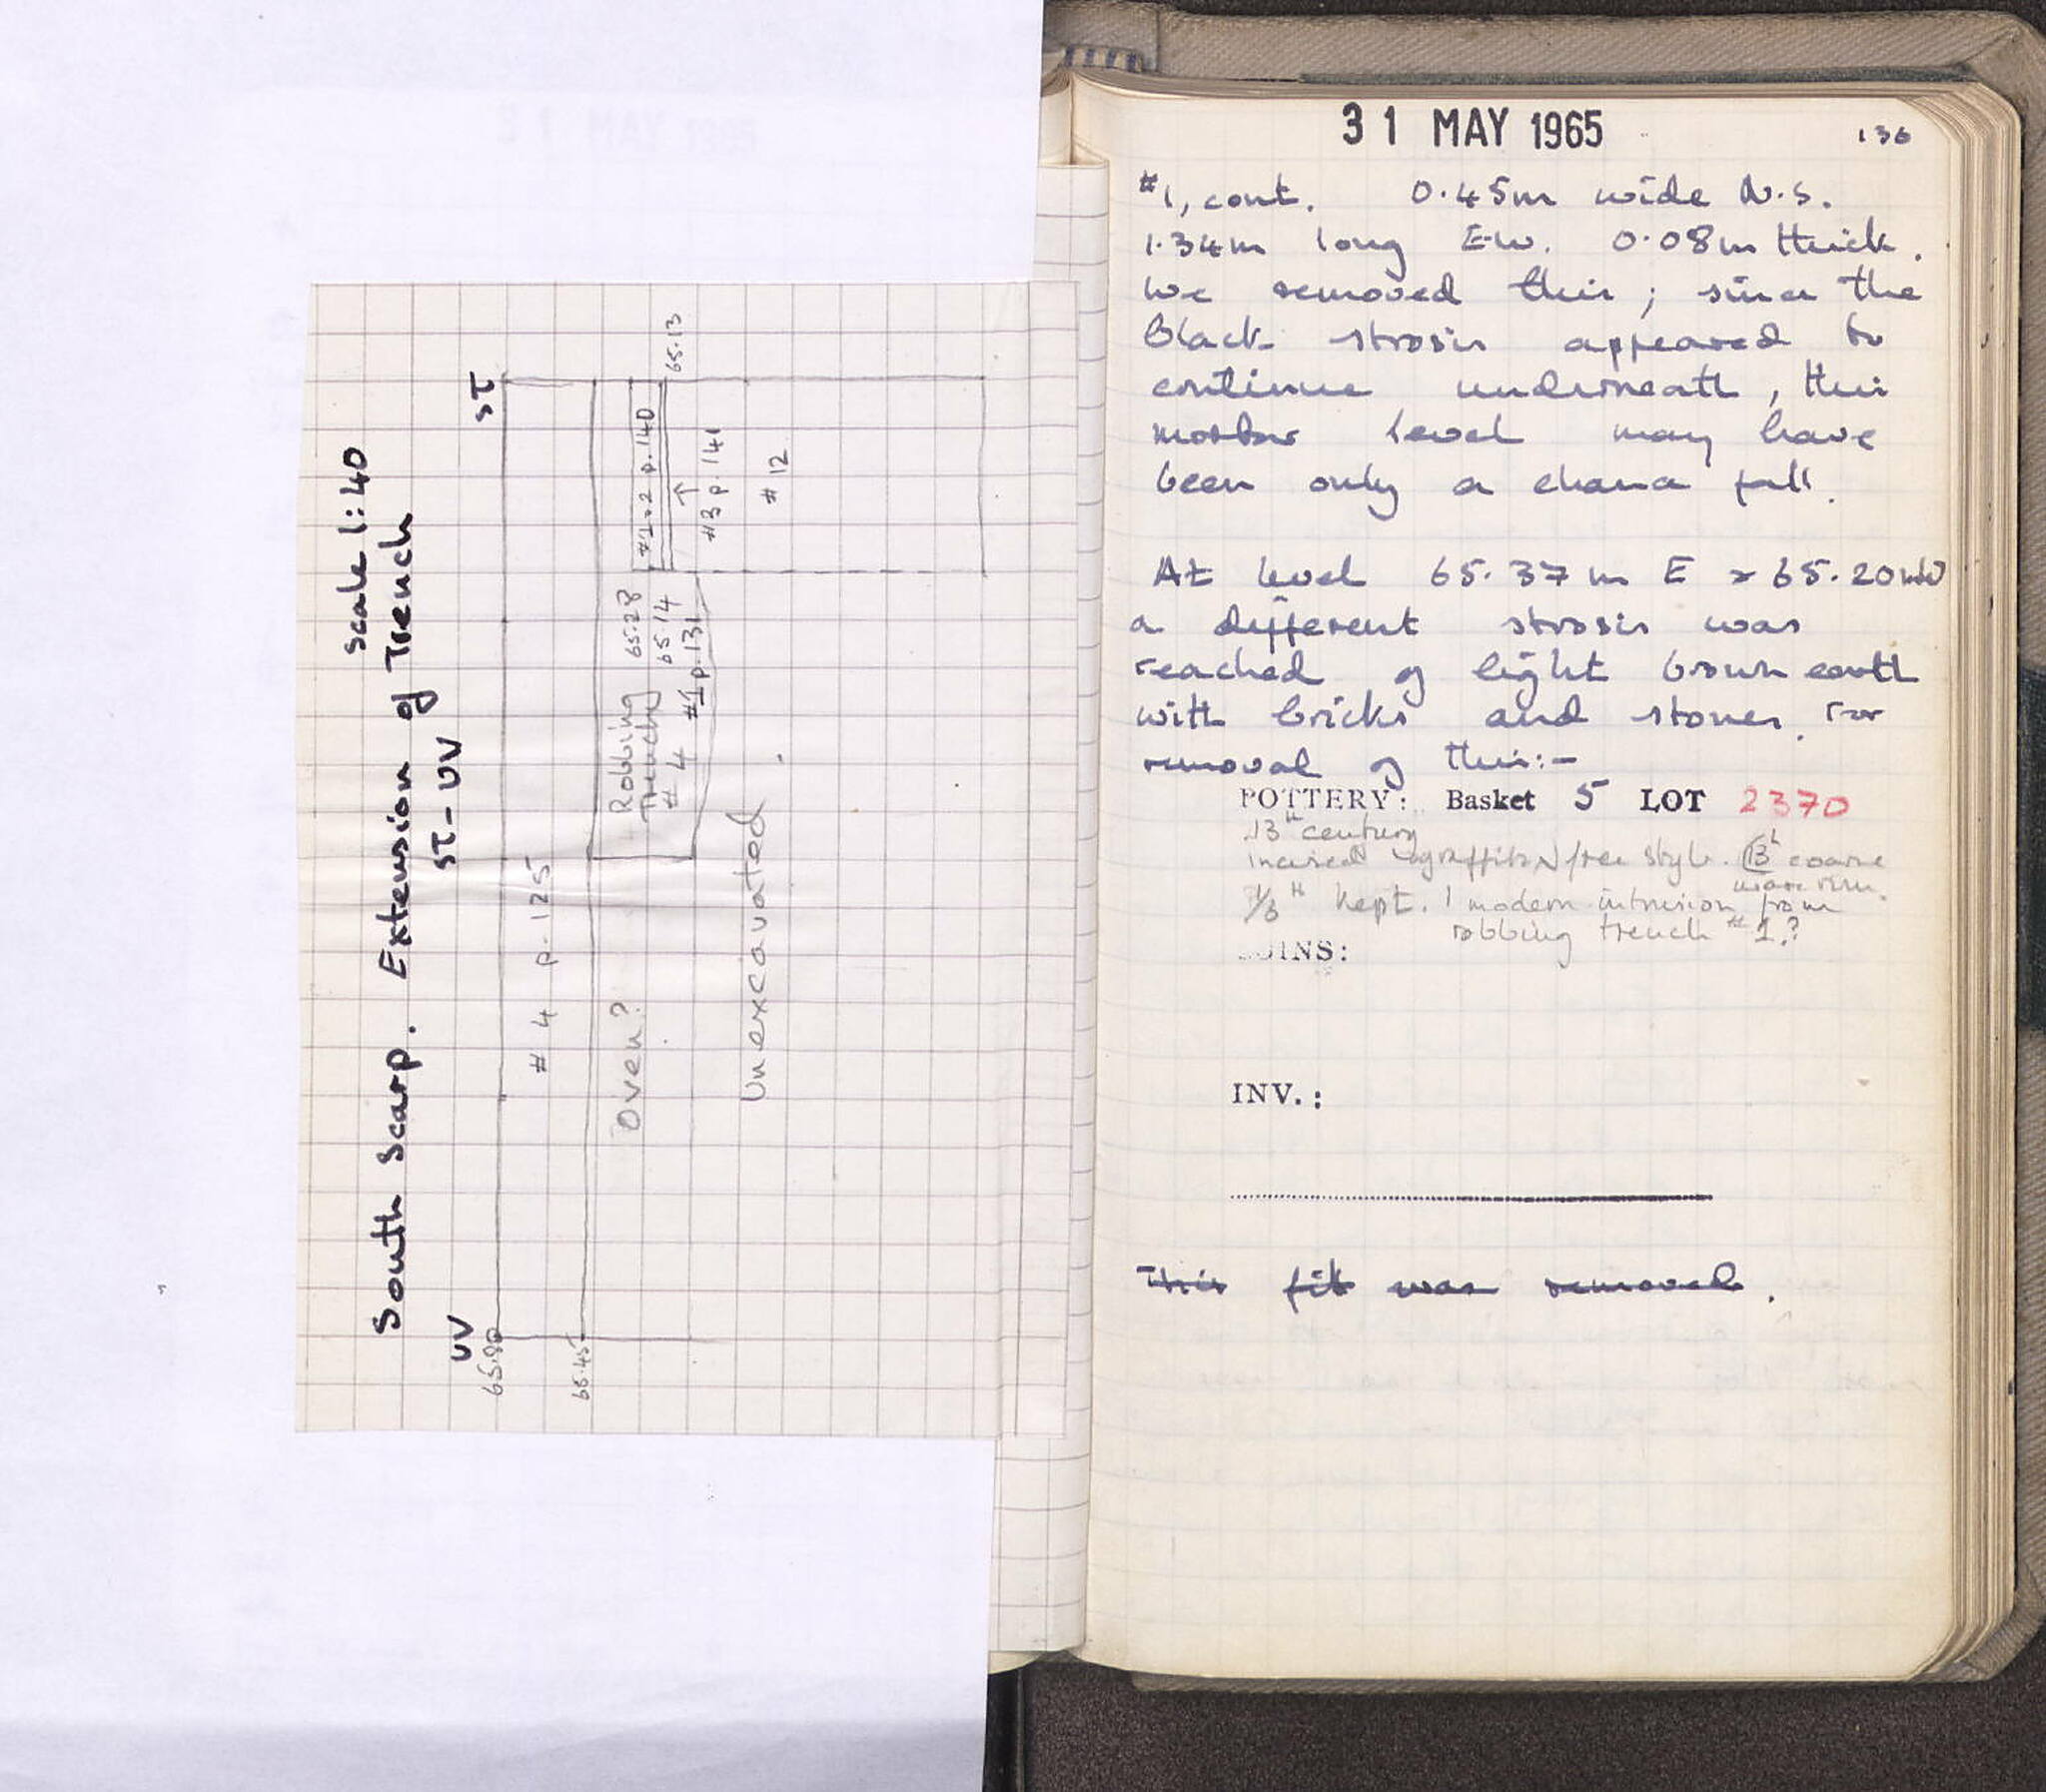 Scale 1:40
South Scarp. Extension of Trench
ST-UV
UV
ST
65.80
65.45
# 4 p.125
Oven?
Robbing
Trench
# 4
65.28
65.14
#1 p.131
p.140
65.13
#3 p.141
# 12
Unexcavated
31 MAY 1965
136
#1, cont. 0.45m wide N.S.
1.34m long E.W. 0.08m thick.
We removed this; since the
black strosis appeared to
continue underneath, this
mortar level may have
been only a chance fall.
At level 65.37m E 65.20m W
a different strosis was
reached of light brown earth
with bricks and stones. For
removal of this:-
POTTERY: Basket 5 LOT 2370
13th century
incised sgraffito free style. 13th coarse
ware rim.
kept. 1 modern intrusion from
robbing trench #1.?
COINS:
INV.:
This pit was removed.